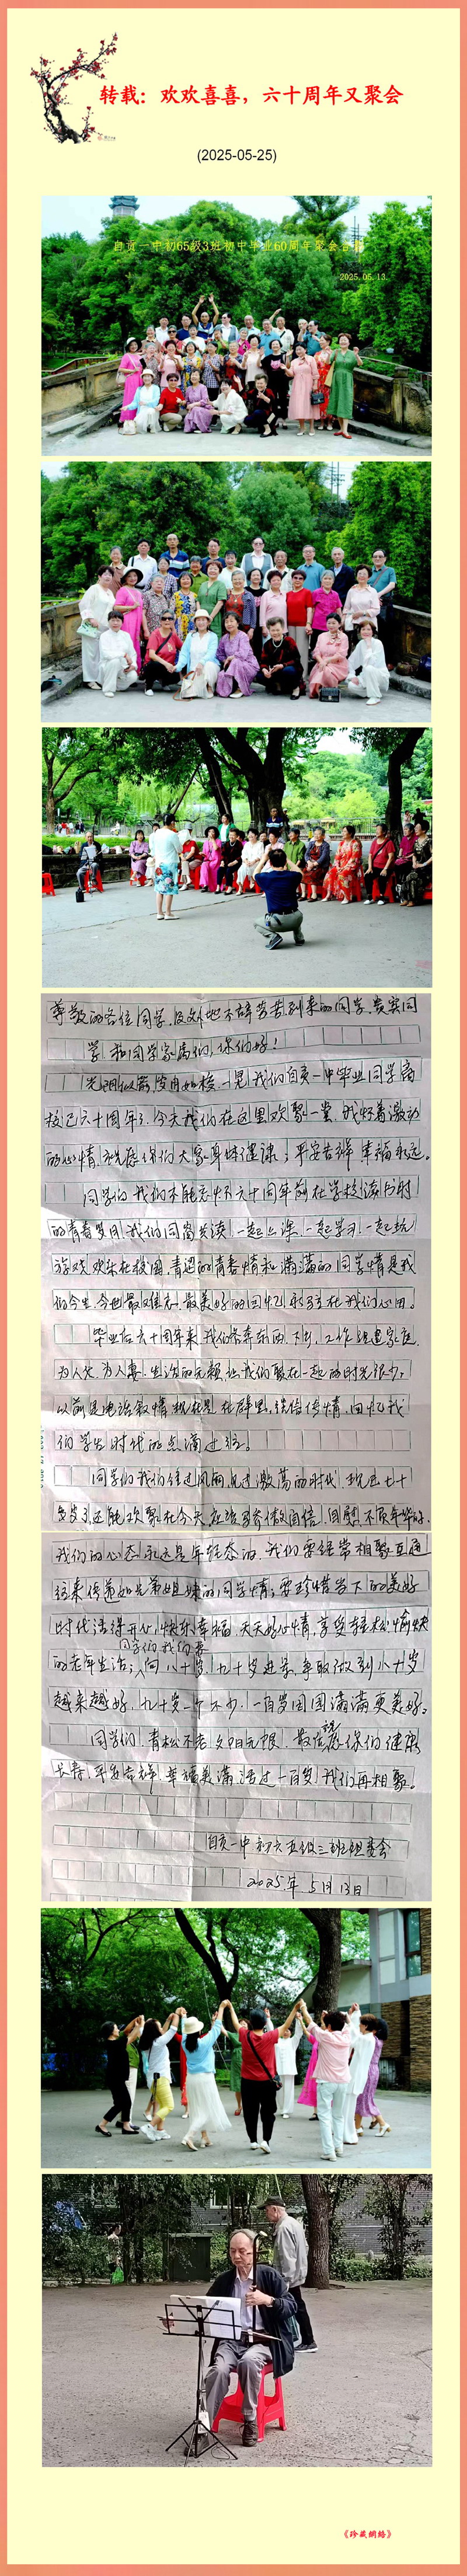 转载：欢欢喜喜，六十周年又聚会
(2025-05-25)
自贡一中初65级3班初中毕业60周年聚会合影
2025.05.13.
尊敬的各位同学，及外地不辞劳苦到来的同学，贵宾同
学和同学家属们，你们好！
光阴似箭，岁月如梭，一晃我们自贡一中毕业同学离
校已六十周年了，今天我们在这里欢聚一堂，我怀着激动
的心情，祝愿你们大家身体健康；平安吉祥 幸福永远。
同学们我们不能忘怀六十周年前在学校读书时
的青春岁月，我们同窗共读，一起上课，一起学习，一起玩
游戏 欢乐在校园，青涩的青春情和满满的同学情是我
们今生，今世最难忘，最美好的回忆 永驻在我们心田。
毕业后六十周年来，我们各奔东西，下乡，工作 组建家庭，
为人父，为人妻，生活的 让我们聚在一起的时光很少，
以前是电话叙情 现在是 在群里，微信传情，回忆我
们学生时代的点滴过往。
同学们我们经过风雨，见过激荡的时代，现已七十
多岁了，还能欢聚在今天，应该 自信，回慰，不负年华的，
我们的心态永远是年轻态的，我们要经常相聚 互通
往来 传递如兄弟姐妹的同学情；要珍惜当下的美好
时代 活得开心，快乐幸福，天天好心情，享受轻松愉快
的老年生活；同学们我们要向八十岁，九十岁进军，争取做到八十岁
越来越好，九十岁一个不少，一百岁圆圆满满更美好。
同学们，青松不老，夕阳无限，敬祝愿你们健康
长寿，平安吉祥，幸福美满，活过一百岁，我们再相聚。
自贡一中初六五级三班组委会
2025年5月13日
《珍藏网络》